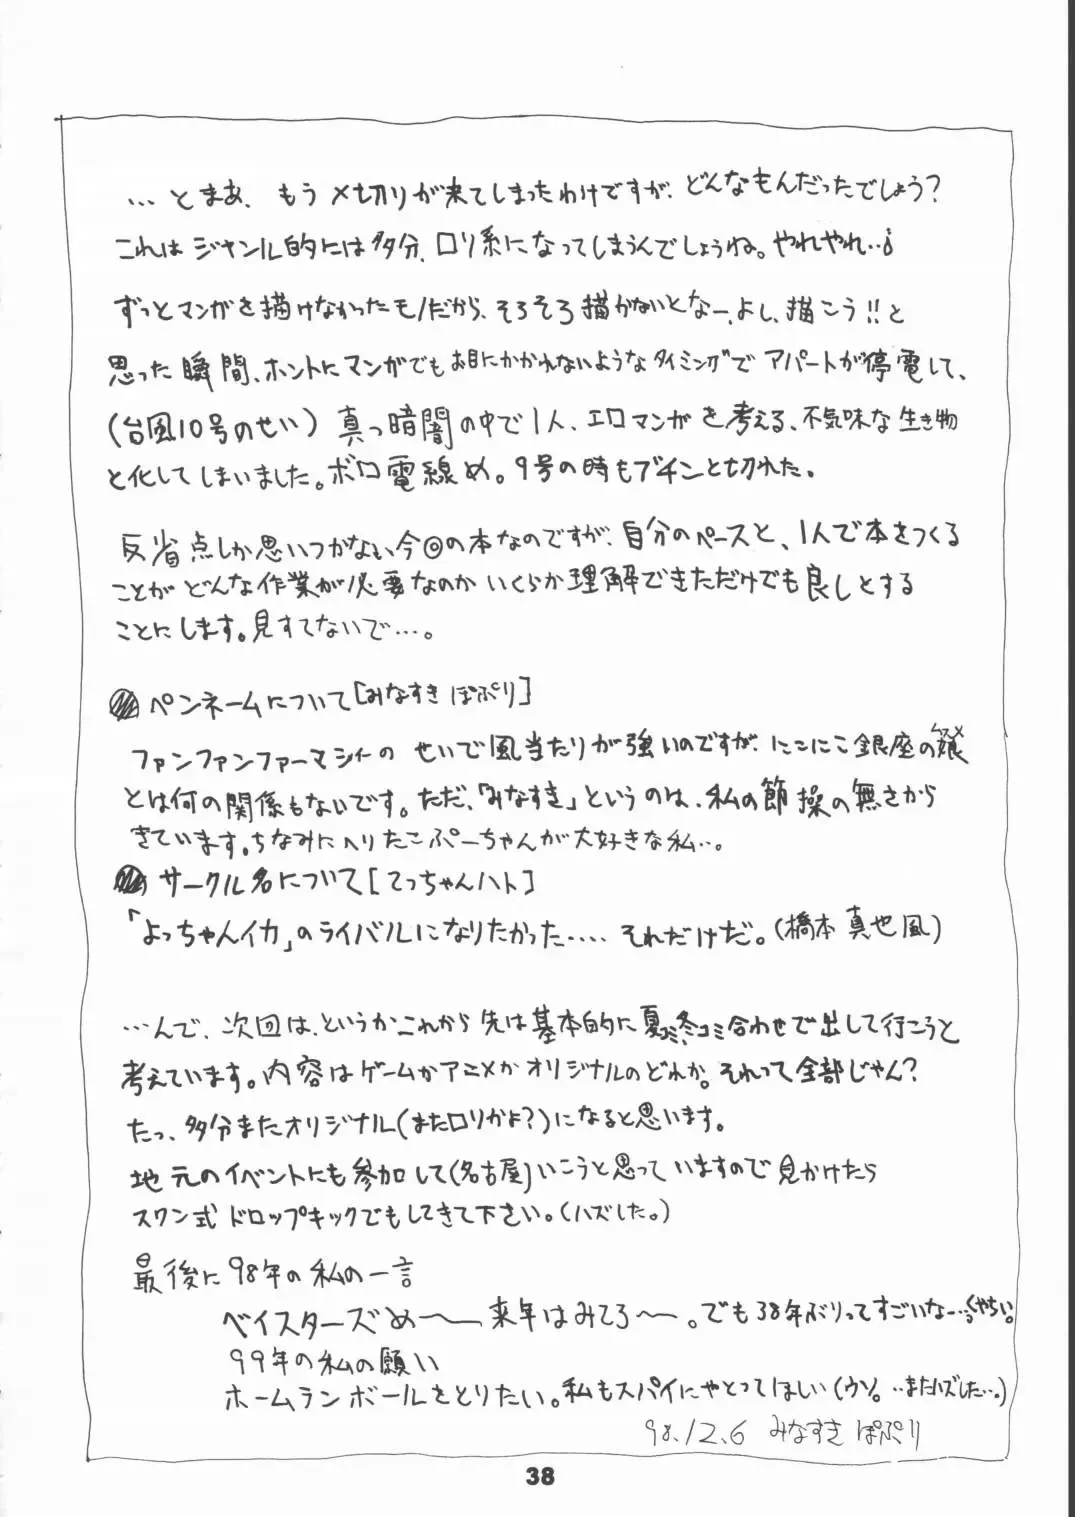 …とまあ、もう〆切りが来てしまったわけですが、どんなもんだったでしょう?
これはジャンル的には多分、ロリ系になってしまうんでしょうね。やれやれ‥
ずっとマンガを描けなかったモノだから、そろそろ描かないとなー、よし、描こう!!と
思った瞬間、ホントにマンガでもお目にかかれないようなタイミングでアパートが停電して、
(台風10号のせい)真っ暗闇の中で1人、エロマンガを考える、不気味な生き物
と化してしまいました。ボロ電線め。9号の時もブチンと切れた。
反省点しか思いつかない今回の本なのですが、自分のペースと、1人で本をつくる
ことがどんな作業が必要なのかいくらか理解できただけでも良しとする
ことにします。見すてないで…。
ペンネームについて[みなすきぽぷり]
ファンファンファーマシィーのせいで風当たりが強いのですが、にこにこ銀座の娘
とは何の関係もないです。ただ、「みなすき」というのは、私の節操の無さから
きています。ちなみにへりたこぷーちゃんが大好きな私…。
サークル名について[てっちゃんハト]
「よっちゃんイカ」のライバルになりたかった‥‥それだけだ。(橋本真也風)
…んで、次回は、というかこれから先は基本的に夏コミ冬コミ合わせで出して行こうと
考えています。内容はゲームかアニメかオリジナルのどれか。それって全部じゃん?
たっ、多分またオリジナル(またロリかよ?)になると思います。
地元のイベントにも参加して(名古屋)いこうと思っていますので見かけたら
スワン式ドロップキックでもしてきて下さい。(ハズした。)
最後に98年の私の一言
ベイスターズめ〜来年はみてろ〜。でも38年ぶりってすごいなー…くやちい。
99年の私の願い
ホームランボールをとりたい。私もスパイにやとってほしい(ウソ。‥またハズした…。)
98.12.6 みなすきぽぷり
38